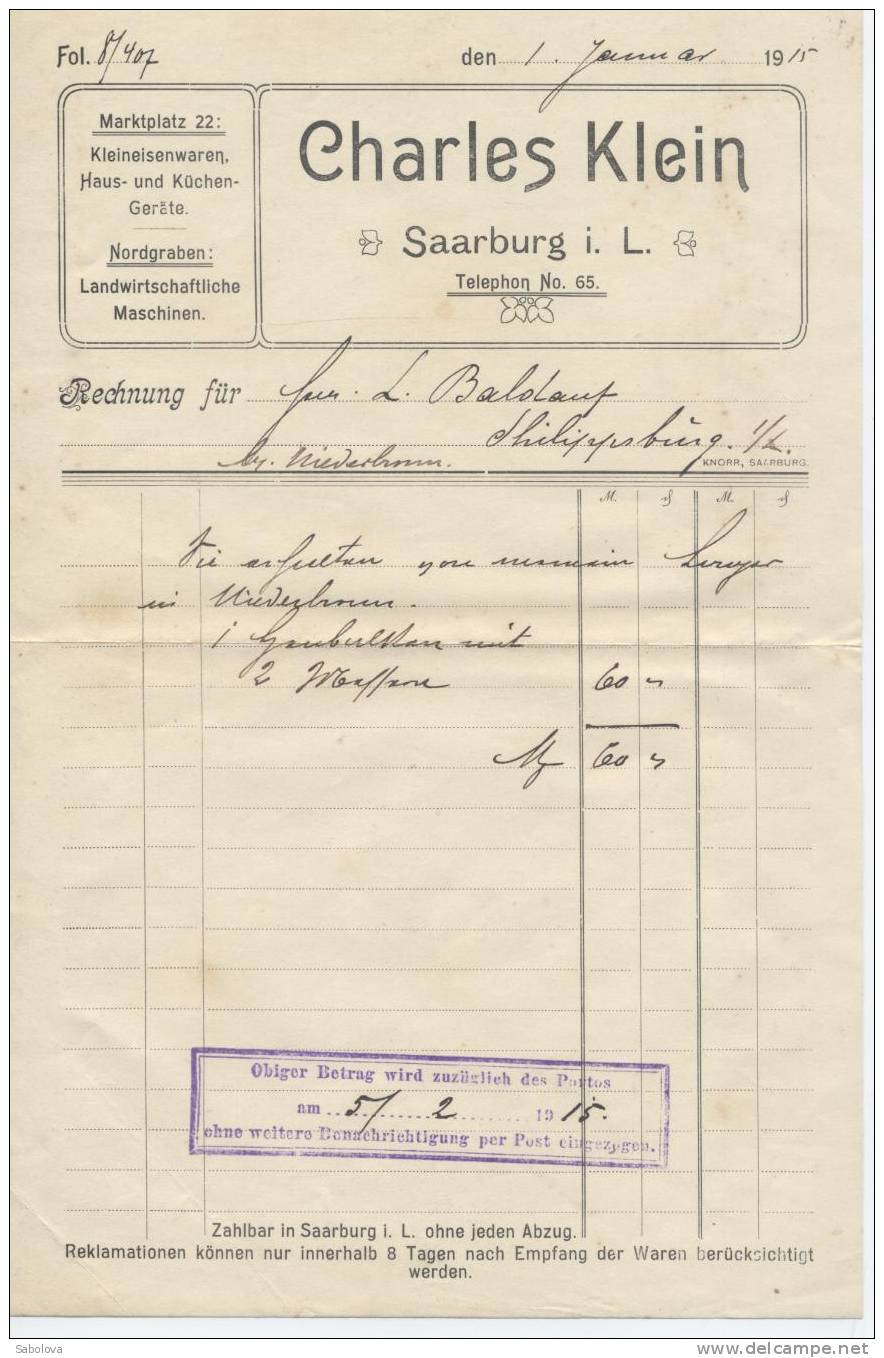 Fol. 8/407 den 1. Januar 1915
Marktplatz 22:
Kleineisenwaren,
Haus- und Küchen-
Geräte.
Nordgraben:
Landwirtschaftliche
Maschinen.
Charles Klein
Saarburg i. L.
Telephon No. 65.
Rechnung für L. Baldauf
Philippsburg. i/L.
Niederbronn.
KNORR, SAARBURG.
M. ₰ M. ₰
Sie erhielten von meinem Lager
in Niederbronn.
1 mit
2 Messern 60 "
M 60 "
Obiger Betrag wird zuzüglich des Portos
am 5/ 2 1915.
ohne weitere Benachrichtigung per Post eingezogen.
Zahlbar in Saarburg i. L. ohne jeden Abzug.
Reklamationen können nur innerhalb 8 Tagen nach Empfang der Waren berücksichtigt
werden.
Sabolova
www.delcampe.net